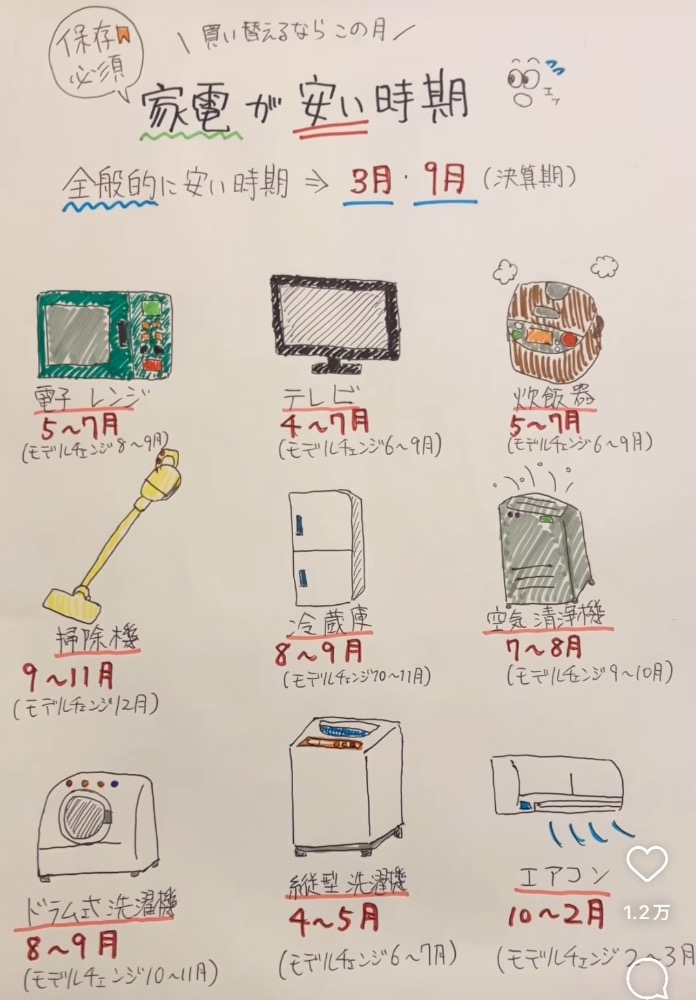 保存
必須
\ 買い替えるならこの月 /
家電が安い時期
エッ
全般的に安い時期 ⇒ 3月・9月(決算期)
電子レンジ
5〜7月
(モデルチェンジ8〜9月)
テレビ
4〜7月
(モデルチェンジ6〜9月)
炊飯器
5〜7月
(モデルチェンジ6〜9月)
掃除機
9〜11月
(モデルチェンジ12月)
冷蔵庫
8〜9月
(モデルチェンジ10〜11月)
空気清浄機
7〜8月
(モデルチェンジ9〜10月)
ドラム式洗濯機
8〜9月
(モデルチェンジ10〜11月)
縦型洗濯機
4〜5月
(モデルチェンジ6〜7月)
エアコン
10〜2月
(モデルチェンジ2〜3月
1.2万